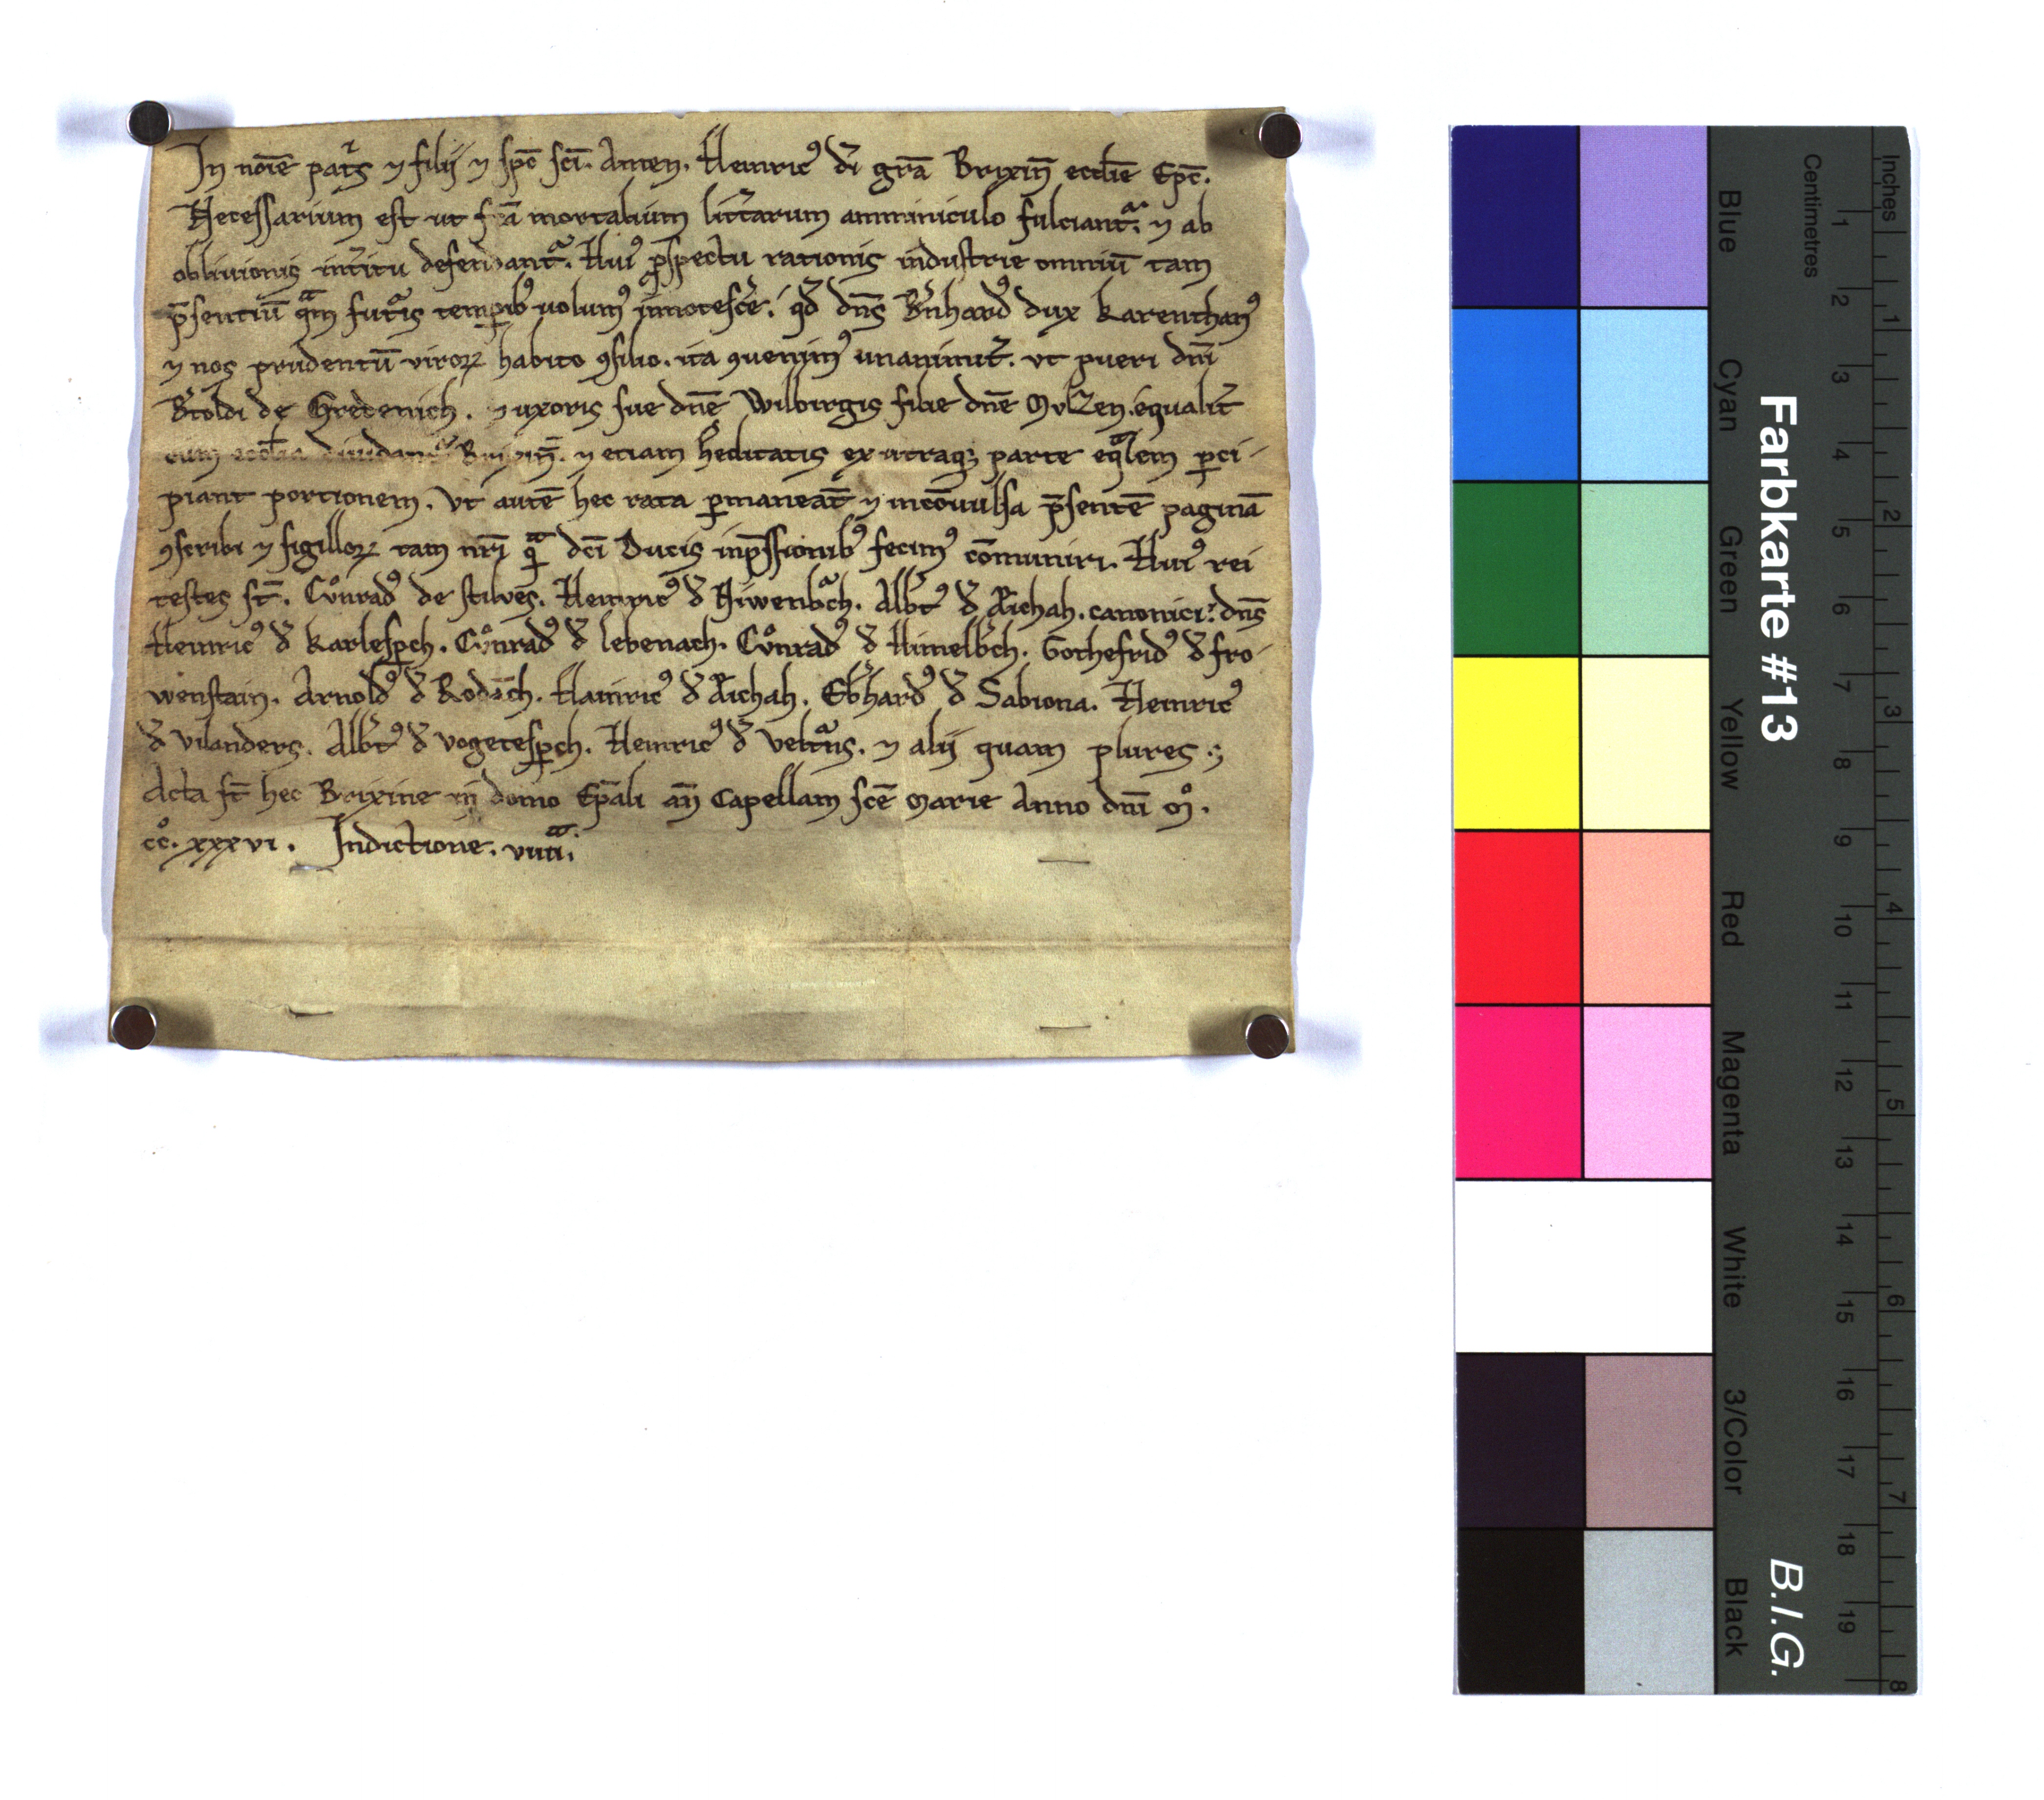 In noīe pat͛s ⁊ filij ⁊ sp̄c sc̄i. Amen. Heinricꝰ di͛ gr̄a Brixin̄ eccl̄ie Ep̄c.
Necessarium est ut f̄ca mortalium litt͛arum amminiculo fulciant᷑. ⁊ ab
oblivionis int͛itu defendant᷑. Huiꝰ ꝑspectu rationis industrie omniū tam
p̄sentiū qͣm futᷓis temꝑibꝰ uolumꝰ innotesc͛e. qd̄ dn̄s B͛nhardꝰ dux Karenthanꝰ
⁊ nos prudentū viroꝝ habito ꝯsilio. ita ꝯuenimꝰ unanimit͛. vt pueri dn̄i
B͛toldi de Gredenich. ⁊ uxoris sue dn̄e Wilbirgis filie dn̄e Oͮlzen. equalit͛
cum eccl̄ia diuidant᷑ Brixin̄. ⁊ etiam h͛editatis ex utraqꝫ parte eqͣlem ꝑci-
piant portionem. Vt autē hec rata ꝑmaneāt ⁊ incōuulsa p̄sentē paginā
ꝯscribi ⁊ sigilloꝝ tam nr̄i qͣ dc̄i Ducis inp̄ssionibꝰ fecimꝰ cōmuniri. Huiꝰ rei
testes st̄. Cuͦnradꝰ de stilves. Heinricꝰ đ Niwenbᷓch. Alb͛tꝰ đ Aichah. canonici. dn̄s
Heinricꝰ đ Karlesꝑch. Cuͦnradꝰ đ lebenach. Cuͦnradꝰ đ Himelb͛ch. Gothefridꝰ đ fro-
wenstain. Arnoldꝰ đ Rodāch. Hainricꝰ đ Aichah. Eb͛hardꝰ đ Sabiona. Heinricꝰ
đ Vilanders. Alb͛tꝰ đ vogetesꝑch. Heinricꝰ đ Veltᷓns. ⁊ alij quam plures.
Acta st̄ hec Brixine in domo Ep̄ali an̄ Capellam sc̄e Marie Anno dn̄i Mͦ.
ccͦ. xxxvi. Indictione. viiiiͣ.
Farbkarte #13
B.I.G.
Centimetres
Inches
Blue
Cyan
Green
Yellow
Red
Magenta
White
3/Color
Black
1 2 3 4 5 6 7 8 9 10 11 12 13 14 15 16 17 18 19
1 2 3 4 5 6 7 8